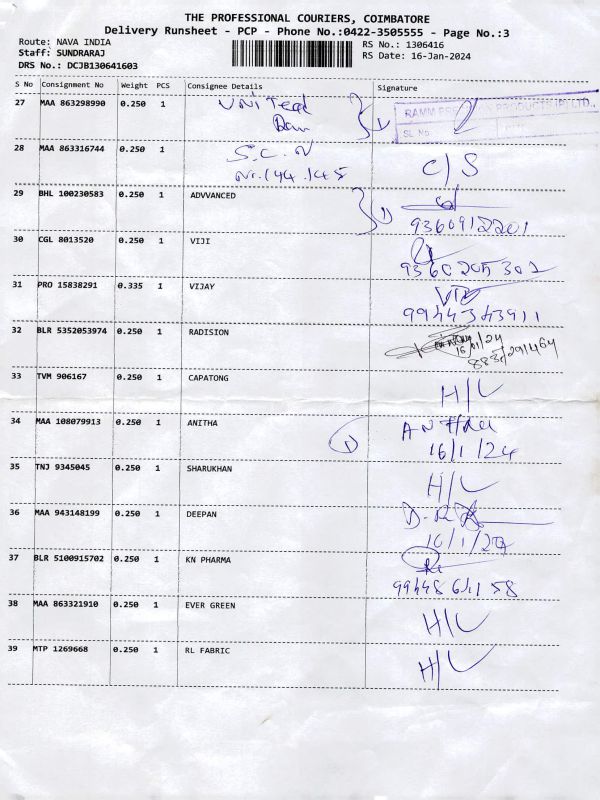 THE PROFESSIONAL COURIERS, COIMBATORE
Delivery Runsheet - PCP - Phone No.:0422-3505555 - Page No.:3
Route: NAVA INDIA
RS No.: 1306416
Staff: SUNDRARAJ
RS Date: 16-Jan-2024
DRS No.: DCJB130641603
S No Consignment No Weight PCS Consignee Details Signature
27 MAA 863298990 0.250 1 United
RAMM
SL No.
28 MAA 863316744 0.250 1 S.C.N C/S
Nr.144.145
29 BHL 100230583 0.250 1 ADVVANCED
9360912201
30 CGL 8013520 0.250 1 VIJI
9360205302
31 PRO 15838291 0.335 1 VIJAY
9944343911
32 BLR 5352053974 0.250 1 RADISION
33 TVM 906167 0.250 1 CAPATONG H/L
34 MAA 108079913 0.250 1 ANITHA
16/1/24
35 TNJ 9345045 0.250 1 SHARUKHAN H/L
36 MAA 943148199 0.250 1 DEEPAN
16/1/24
37 BLR 5100915702 0.250 1 KN PHARMA
38 MAA 863321910 0.250 1 EVER GREEN H/L
39 MTP 1269668 0.250 1 RL FABRIC H/L